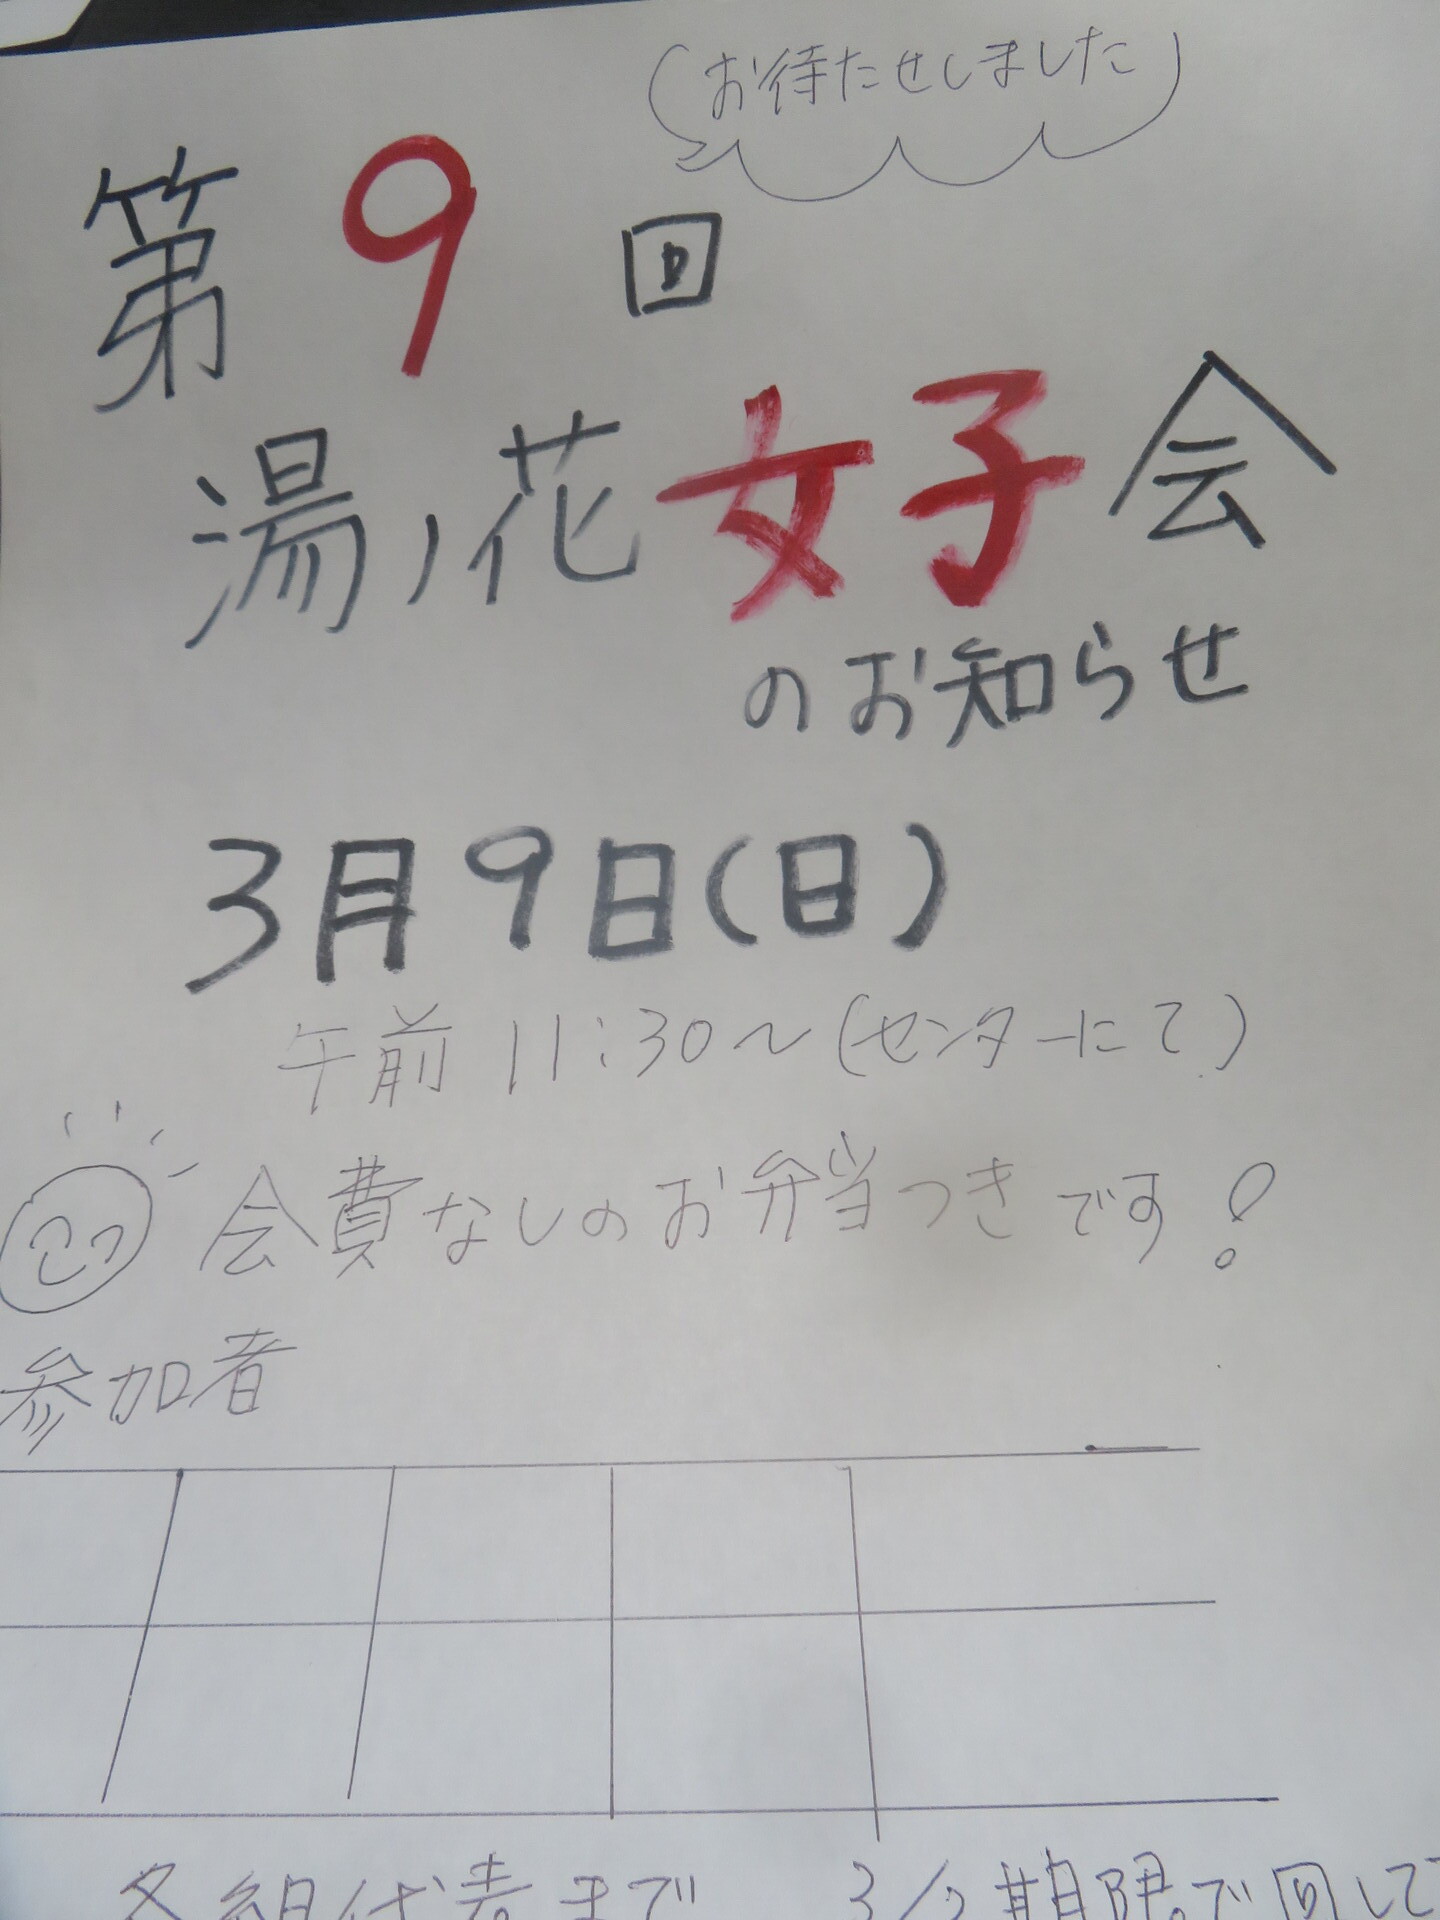 (お待たせしました)
第9回
湯ノ花女子会
のお知らせ
3月9日(日)
午前 11:30〜(センターにて)
会費なしのお弁当つきです!
参加者
各組代表まで 3/2期限で回して